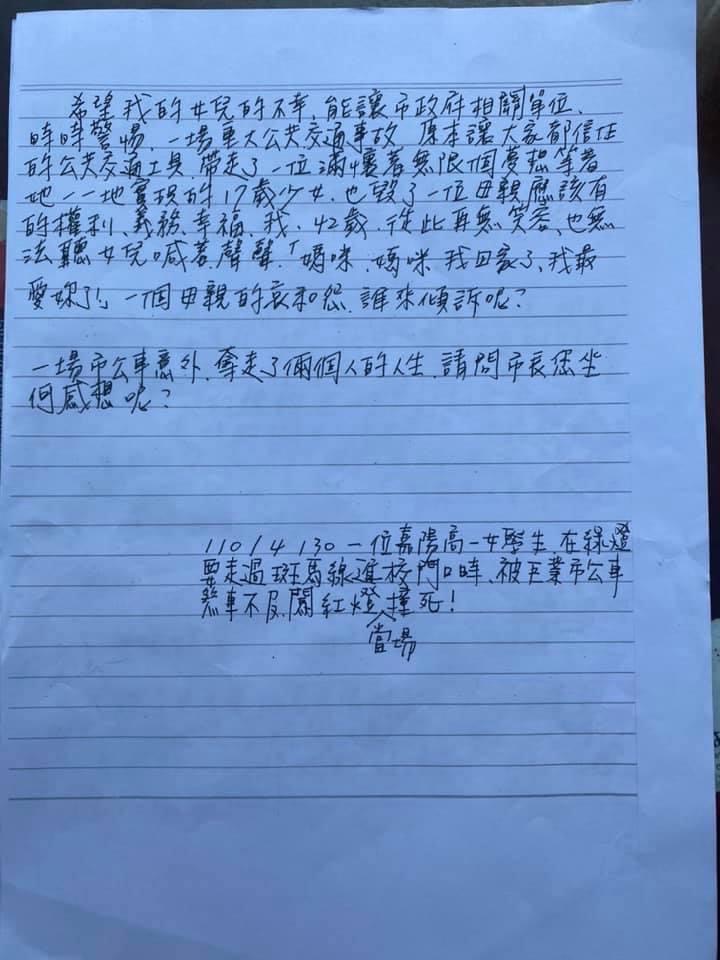 希望我的女兒的不幸、能讓市政府相關單位、
時時警惕、一場重大公共交通事故、原本讓大家都信任
的公共交通工具、帶走了一位滿懷著無限個夢想等著
她一一地實現的17歲少女、也毀了一位母親應該有
的權利、義務、幸福、我、42歲、從此再無笑容、也無
法聽女兒喊著聲聲、「媽咪、媽咪、我回家了、我最
愛妳了!」一個母親的哀和怨、誰來傾訴呢?
一場市公車意外、奪走了倆個人的人生、請問市長您坐
何感想呢?
110/4/30一位嘉陽高一女學生、在綠燈
要走過斑馬線進校門口時、被巨業市公車
煞車不及闖紅燈撞死!
當場